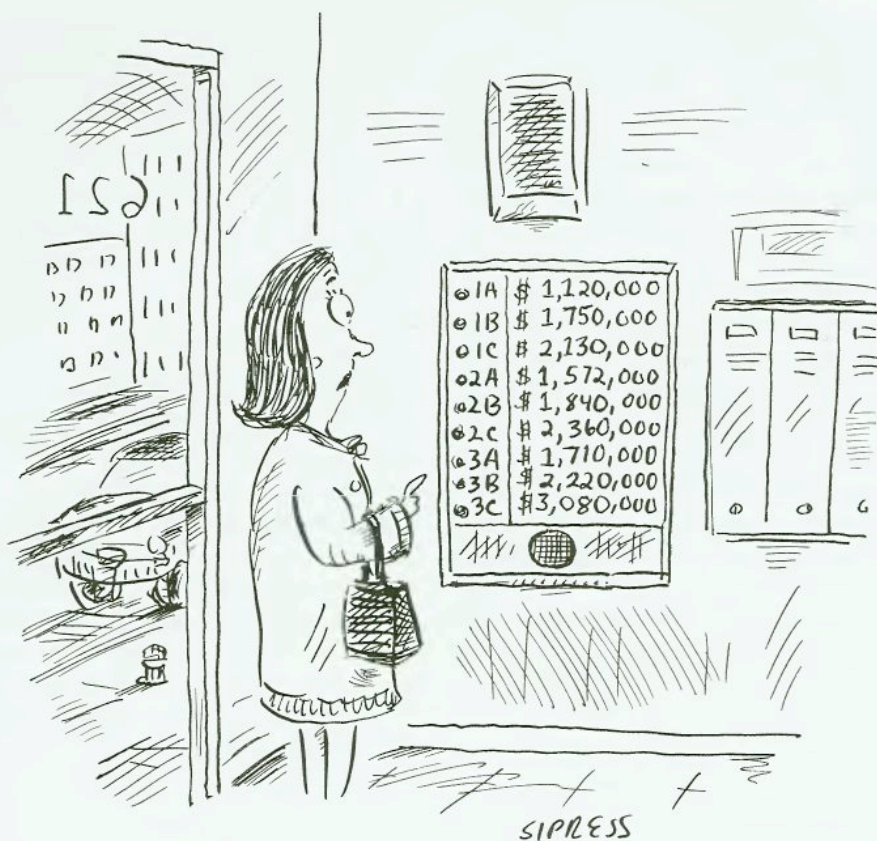 621
1A $ 1,120,000
1B $ 1,750,000
1C $ 2,130,000
2A $ 1,572,000
2B $ 1,840,000
2C $ 2,360,000
3A $ 1,710,000
3B $ 2,220,000
3C $3,080,000
SIPRESS